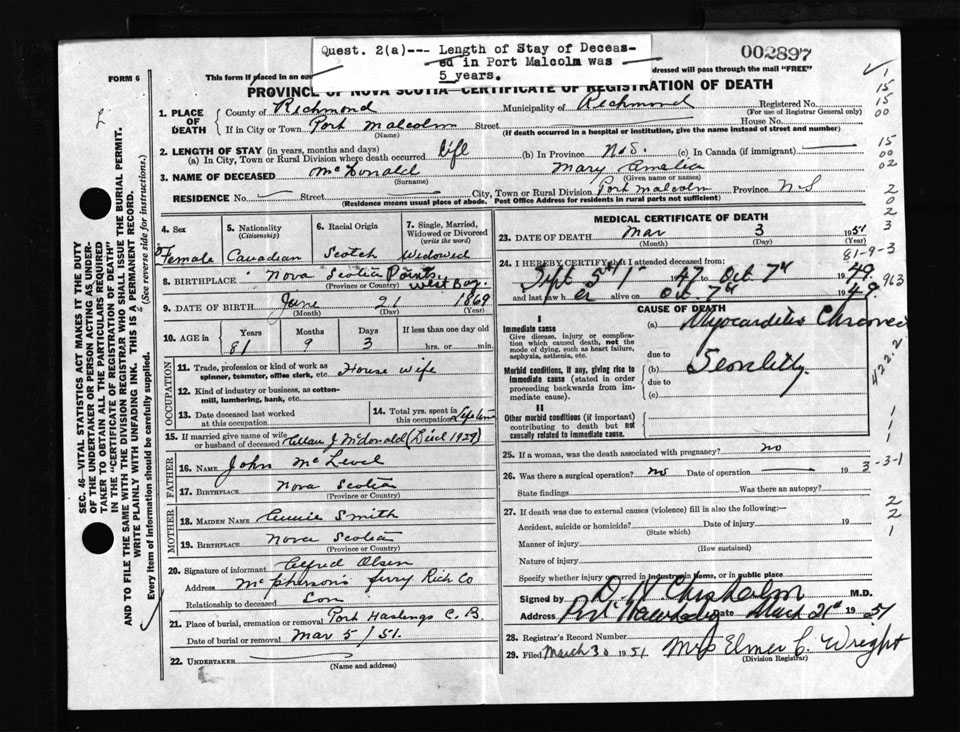 Quest. 2(a)--- Length of Stay of Deceas-
ed in Port Malcolm was
5 years.
002897
FORM 6
This form if placed in an
dressed will pass through the mail "FREE"
PROVINCE OF NOVA SCOTIA—CERTIFICATE OF REGISTRATION OF DEATH
1. PLACE OF DEATH
County of Richmond Municipality of Richmond Registered No.
(For use of Registrar General only)
If in City or Town Port Malcolm Street House No.
(Name) (If death occurred in a hospital or institution, give the name instead of street and number)
2. LENGTH OF STAY (in years, months and days)
(a) In City, Town or Rural Division where death occurred Life (b) In Province N.S. (c) In Canada (if immigrant)
3. NAME OF DECEASED McDonald Mary Amelia
(Surname) (Given name or names)
RESIDENCE No. Street City, Town or Rural Division Port Malcolm Province N.S
(Residence means usual place of abode. Post Office Address for residents in rural parts not sufficient)
4. Sex
Female
5. Nationality
(Citizenship)
Canadian
6. Racial Origin
Scotch
7. Single, Married,
Widowed or Divorced
(write the word)
Widowed
8. BIRTHPLACE Nova Scotia Points West Bay.
(Province or Country)
9. DATE OF BIRTH June 21 1869
(Month) (Day) (Year)
10. AGE in
Years Months Days If less than one day old
81 9 3 hrs. or min.
OCCUPATION
11. Trade, profession or kind of work as
spinner, teamster, office clerk, etc. House wife
12. Kind of industry or business, as cotton-
mill, lumbering, bank, etc.
13. Date deceased last worked
at this occupation
14. Total yrs. spent in
this occupation Lifetime
15. If married give name of wife
or husband of deceased Allan J McDonald (Died 1929)
FATHER
16. NAME John
17. BIRTHPLACE Nova Scotia
(Province or Country)
MOTHER
18. MAIDEN NAME Annie Smith
19. BIRTHPLACE Nova Scotia
(Province or Country)
20. Signature of informant Alfred Olsen
Address McPherson's ferry Rich Co
Relationship to deceased Son
21. Place of burial, cremation or removal Port Hastings C.B.
Date of burial or removal Mar 5/51.
22. UNDERTAKER
(Name and address)
MEDICAL CERTIFICATE OF DEATH
23. DATE OF DEATH Mar 3 1951
(Month) (Day) (Year)
81-9-3
24. I HEREBY CERTIFY that I attended deceased from:
Sept 47 to Oct 7th 1949.
and last saw her alive on Oct. 7th 1949
963
CAUSE OF DEATH
I
Immediate cause
Give disease, injury or complica-
tion which caused death, not the
mode of dying, such as heart failure,
asphyxia, asthenia, etc.
(a) Myocarditis Chronic
due to
Morbid conditions, if any, giving rise to
immediate cause (stated in order
proceeding backwards from im-
mediate cause).
(b) Senility
due to
(c)
422.2
II
Other morbid conditions (if important)
contributing to death but not
causally related to immediate cause.
25. If a woman, was the death associated with pregnancy? no
26. Was there a surgical operation? no Date of operation 19
3-3-1
State findings Was there an autopsy?
27. If death was due to external causes (violence) fill in also the following:—
Accident, suicide or homicide? Date of injury 19
(State which)
Manner of injury
(How sustained)
Nature of injury
Specify whether injury occurred in industry in home, or in public place
Signed by D. N. Chisholm M.D.
Address Port Hawkesbury Date March 21st 1951
28. Registrar's Record Number
29. Filed March 30 1951 Mrs Elmer C. Wright
(Division Registrar)
SEC. 46—VITAL STATISTICS ACT MAKES IT THE DUTY
OF THE UNDERTAKER OR PERSON ACTING AS UNDER-
TAKER TO OBTAIN ALL THE PARTICULARS REQUIRED
IN THE "CERTIFICATE OF REGISTRATION OF DEATH"
AND TO FILE THE SAME WITH THE DIVISION REGISTRAR WHO SHALL ISSUE THE BURIAL PERMIT.
WRITE PLAINLY WITH UNFADING INK. THIS IS A PERMANENT RECORD.
Every item of information should be carefully supplied. (See reverse side for instructions.)
1
15
15
00
15
00
02
2
0
2
3
1
1
1
2
2
1